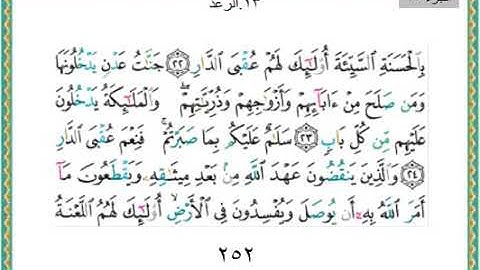 ١٣.الرعد
بِالْحَسَنَةِ السَّيِّئَةَ أُوْلَٰٓئِكَ لَهُمْ عُقْبَى الدَّارِ ﴿٢٢﴾ جَنَّٰتُ عَدْنٍ يَدْخُلُونَهَا
وَمَن صَلَحَ مِنْ ءَابَآئِهِمْ وَأَزْوَٰجِهِمْ وَذُرِّيَّٰتِهِمْ ۖ وَالْمَلَٰٓئِكَةُ يَدْخُلُونَ
عَلَيْهِم مِّن كُلِّ بَابٍ ﴿٢٣﴾ سَلَٰمٌ عَلَيْكُم بِمَا صَبَرْتُمْ ۚ فَنِعْمَ عُقْبَى الدَّارِ
﴿٢٤﴾ وَالَّذِينَ يَنقُضُونَ عَهْدَ اللَّهِ مِنۢ بَعْدِ مِيثَٰقِهِۦ وَيَقْطَعُونَ مَآ
أَمَرَ اللَّهُ بِهِۦٓ أَن يُوصَلَ وَيُفْسِدُونَ فِى الْأَرْضِ ۙ أُوْلَٰٓئِكَ لَهُمُ اللَّعْنَةُ
٢٥٢